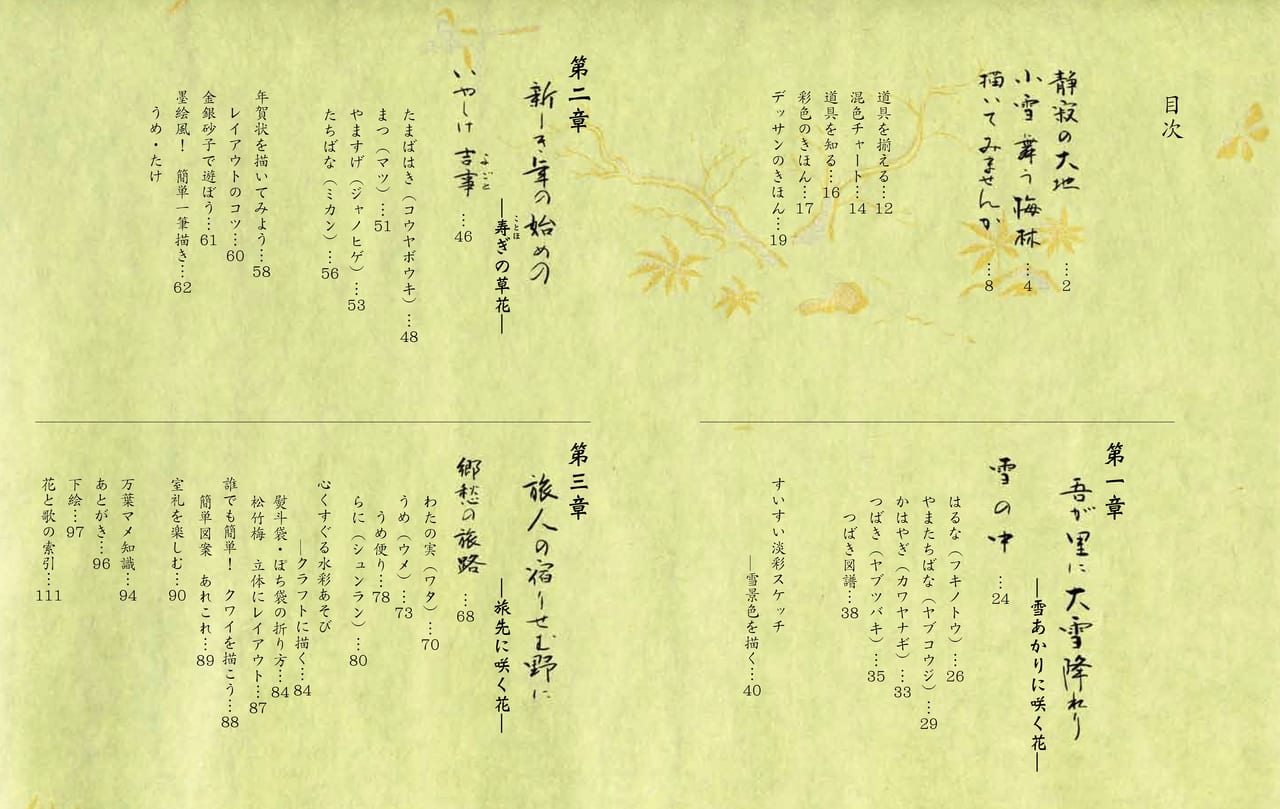 目次
静寂の大地…2
小雪舞う梅林…4
描いてみませんか…8
道具を揃える…12
混色チャート…14
道具を知る…16
彩色のきほん…17
デッサンのきほん…19
第一章
吾が里に大雪降れり
―雪あかりに咲く花―
雪の中…24
はるな（フキノトウ）…26
やまたちばな（ヤブコウジ）…29
かはやぎ（カワヤナギ）…33
つばき（ヤブツバキ）…35
つばき図譜…38
すいすい淡彩スケッチ
―雪景色を描く…40
第二章
新しき年の始めの
―寿ぎの草花―
ことほ
いやしけ吉事…46
よごと
たまばはき（コウヤボウキ）…48
まつ（マツ）…51
やますげ（ジャノヒゲ）…53
たちばな（ミカン）…56
年賀状を描いてみよう…58
レイアウトのコツ…60
金銀砂子で遊ぼう…61
墨絵風！　簡単一筆描き…62
うめ・たけ
第三章
旅人の宿りせむ野に
―旅先に咲く花―
郷愁の旅路…68
わたの実（ワタ）…70
うめ（ウメ）…73
うめ便り…78
らに（シュンラン）…80
心くすぐる水彩あそび
―クラフトに描く…84
熨斗袋・ぽち袋の折り方…84
松竹梅　立体にレイアウト…87
誰でも簡単！　クワイを描こう…88
簡単図案　あれこれ…89
室礼を楽しむ…90
万葉マメ知識…94
あとがき…96
下絵…97
花と歌の索引…111